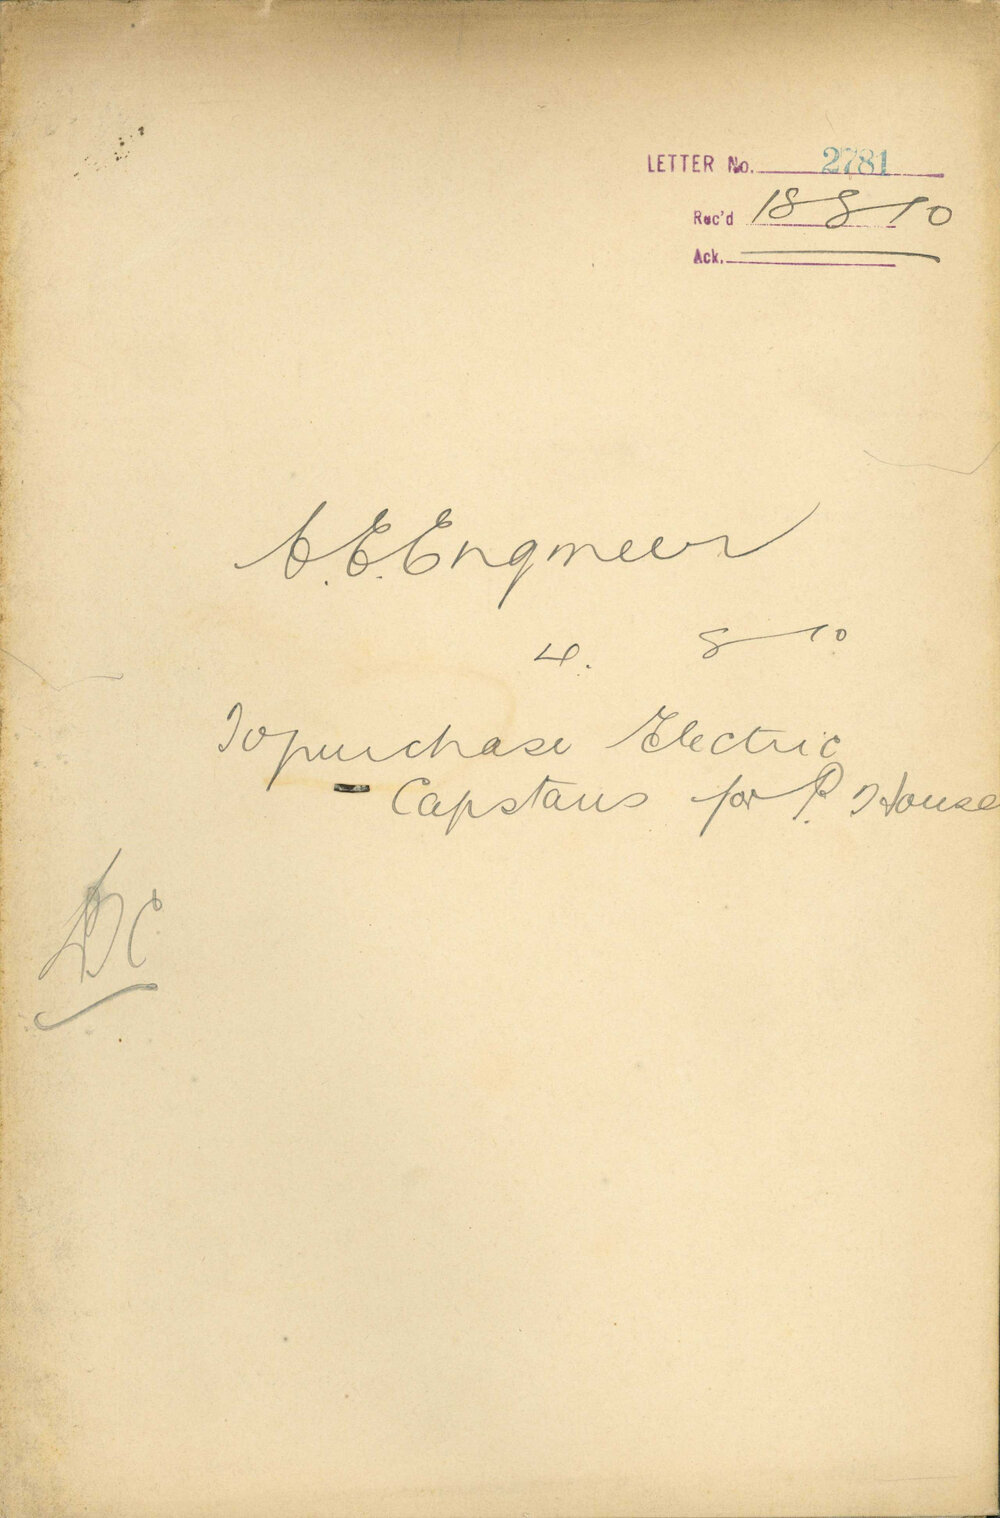 LETTER No. 2781
Rec'd 18 8 10
Ack.
C.E. Engineer
4. 8 10
To purchase Electric
Capstans for P. House